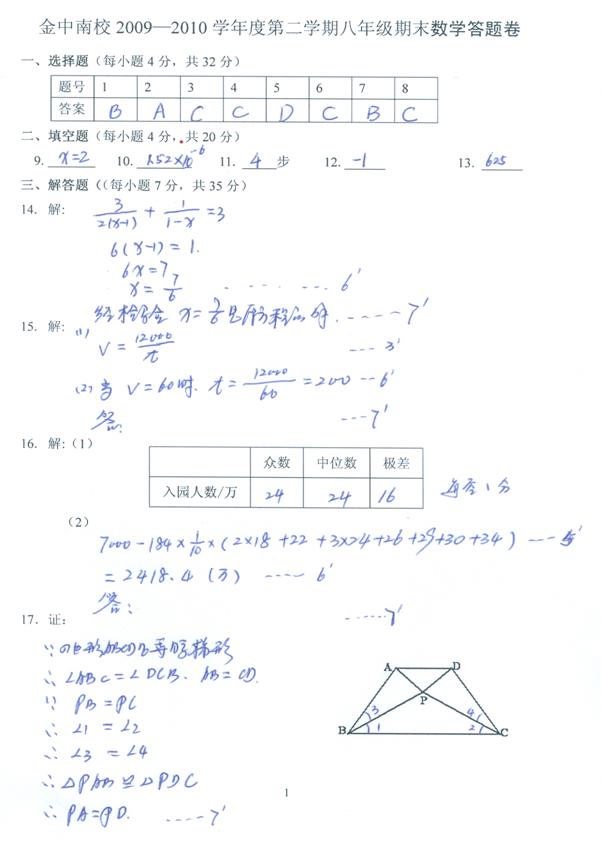 金中南校 2009—2010 学年度第二学期八年级期末数学答题卷
一、选择题（每小题 4 分，共 32 分）
题号 1 2 3 4 5 6 7 8
答案 B A C C D C B C
二、填空题（每小题 4 分，共 20 分）
9. x=2 10. 1.52×10⁻⁶ 11. 4 步 12. -1 13. 625
三、解答题（（每小题 7 分，共 35 分）
14. 解: 3/2(x-1) + 1/(1-x) = 3
6(x-1) = 1.
6x = 7
x = 7/6 ............ 6'
经检验 x = 7/6 是原方程的解. ----- 7'
15. 解: (1)
V = 12000/t --- 3'
(2) 当 V=60时. t = 12000/60 = 200 --- 6'
答: ---- 7'
16. 解:（1）
众数 中位数 极差
入园人数/万 24 24 16 每空1分
（2）
7000-184×1/10×(2×18+22+3×24+26+29+30+34) --- 5'
= 2418.4 (万) ---- 6'
答: ------ 7'
17. 证:
∵四边形ABCD为等腰梯形
∴∠ABC=∠DCB. AB=CD.
∵ PB=PC
∴ ∠1 = ∠2
∴ ∠3 = ∠4
∴△PAB≌△PDC
∴ PA=PD. ----- 7'
A D
P
3 4
B 1 2 C
1